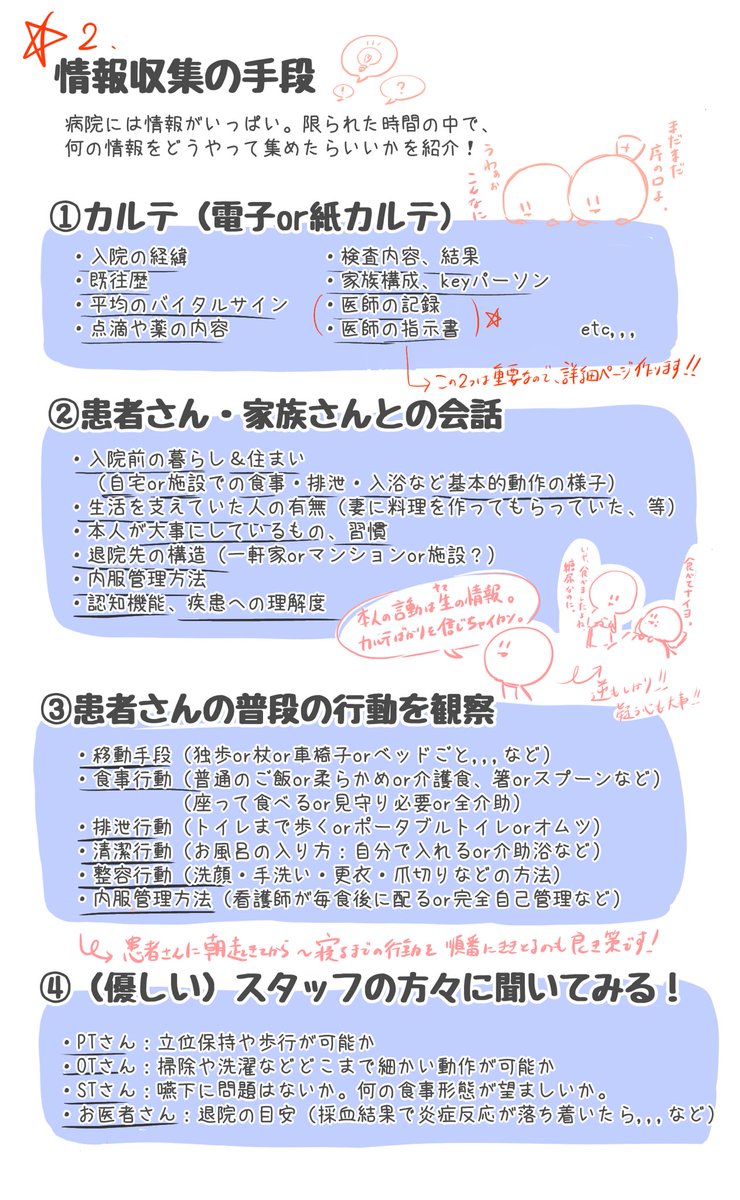 ☆2.
情報収集の手段
病院には情報がいっぱい。限られた時間の中で、
何の情報をどうやって集めたらいいかを紹介!
! ?
まだまだ
序の口よ。
うわぁぁ
こんなに
①カルテ(電子or紙カルテ)
・入院の経緯
・既往歴
・平均のバイタルサイン
・点滴や薬の内容
・検査内容、結果
・家族構成、keyパーソン
(・医師の記録
・医師の指示書)☆
etc,,,
↳この2つは重要なので、詳細ページ作ります!!
②患者さん・家族さんとの会話
・入院前の暮らし&住まい
(自宅or施設での食事・排泄・入浴など基本的動作の様子)
・生活を支えていた人の有無(妻に料理を作ってもらっていた、等)
・本人が大事にしているもの、習慣
・退院先の構造(一軒家orマンションor施設?)
・内服管理方法
・認知機能、疾患への理解度
本人の言動は生の情報。
カルテばかりを信じちゃイカン。
いや、食べましたよね
糖尿なのに。
食べてナイヨ。
逆もしかり!!
疑う心も大事!!
③患者さんの普段の行動を観察
・移動手段(独歩or杖or車椅子orベッドごと,,,など)
・食事行動(普通のご飯or柔らかめor介護食、箸orスプーンなど)
(座って食べるor見守り必要or全介助)
・排泄行動(トイレまで歩くorポータブルトイレorオムツ)
・清潔行動(お風呂の入り方:自分で入れるor介助浴など)
・整容行動(洗顔・手洗い・更衣・爪切りなどの方法)
・内服管理方法(看護師が毎食後に配るor完全自己管理など)
↳患者さんに朝起きてから〜寝るまでの行動を順番にきとるのも良き策です!
④(優しい)スタッフの方々に聞いてみる!
・PTさん:立位保持や歩行が可能か
・OTさん:掃除や洗濯などどこまで細かい動作が可能か
・STさん:嚥下に問題はないか。何の食事形態が望ましいか。
・お医者さん:退院の目安(採血結果で炎症反応が落ち着いたら,,,など)